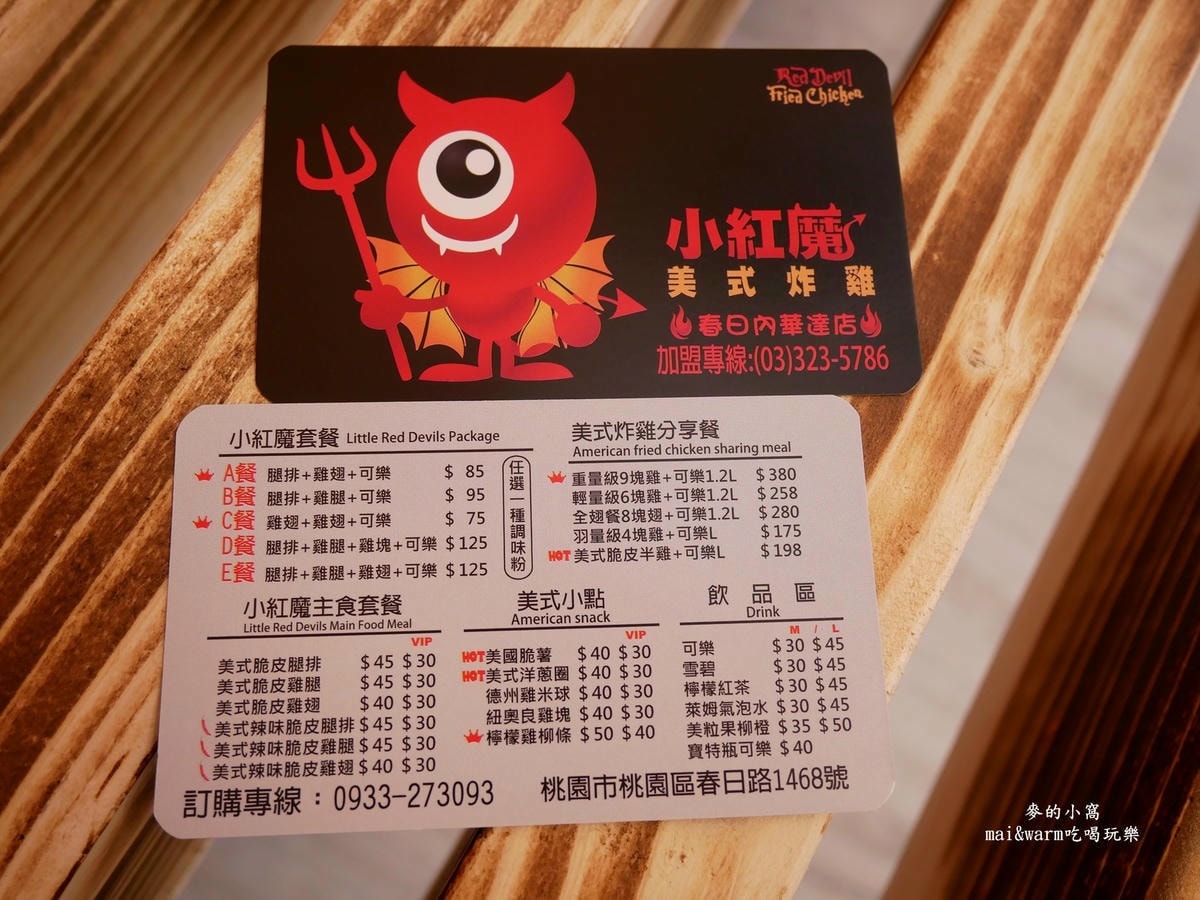 Red Devil
Fried Chicken
小紅魔
美式炸雞
春日內華達店
加盟專線:(03)323-5786
小紅魔套餐 Little Red Devils Package
A餐 腿排+雞翅+可樂 $ 85
B餐 腿排+雞腿+可樂 $ 95
C餐 雞翅+雞翅+可樂 $ 75
D餐 腿排+雞腿+雞塊+可樂 $125
E餐 腿排+雞腿+雞翅+可樂 $125
任選一種調味粉
美式炸雞分享餐
American fried chicken sharing meal
重量級9塊雞+可樂1.2L $380
輕量級6塊雞+可樂1.2L $258
全翅餐8塊翅+可樂1.2L $280
羽量級4塊雞+可樂L $175
HOT 美式脆皮半雞+可樂L $198
小紅魔主食套餐
Little Red Devils Main Food Meal
VIP
美式脆皮腿排 $45 $30
美式脆皮雞腿 $45 $30
美式脆皮雞翅 $40 $30
美式辣味脆皮腿排 $45 $30
美式辣味脆皮雞腿 $45 $30
美式辣味脆皮雞翅 $40 $30
美式小點
American snack
VIP
HOT 美國脆薯 $40 $30
HOT 美式洋蔥圈 $40 $30
德州雞米球 $40 $30
紐奧良雞塊 $40 $30
檸檬雞柳條 $50 $40
飲品區
Drink
M / L
可樂 $30 $45
雪碧 $30 $45
檸檬紅茶 $30 $45
萊姆氣泡水 $30 $45
美粒果柳橙 $35 $50
寶特瓶可樂 $40
訂購專線：0933-273093
桃園市桃園區春日路1468號
麥的小窩
mai&warm吃喝玩樂